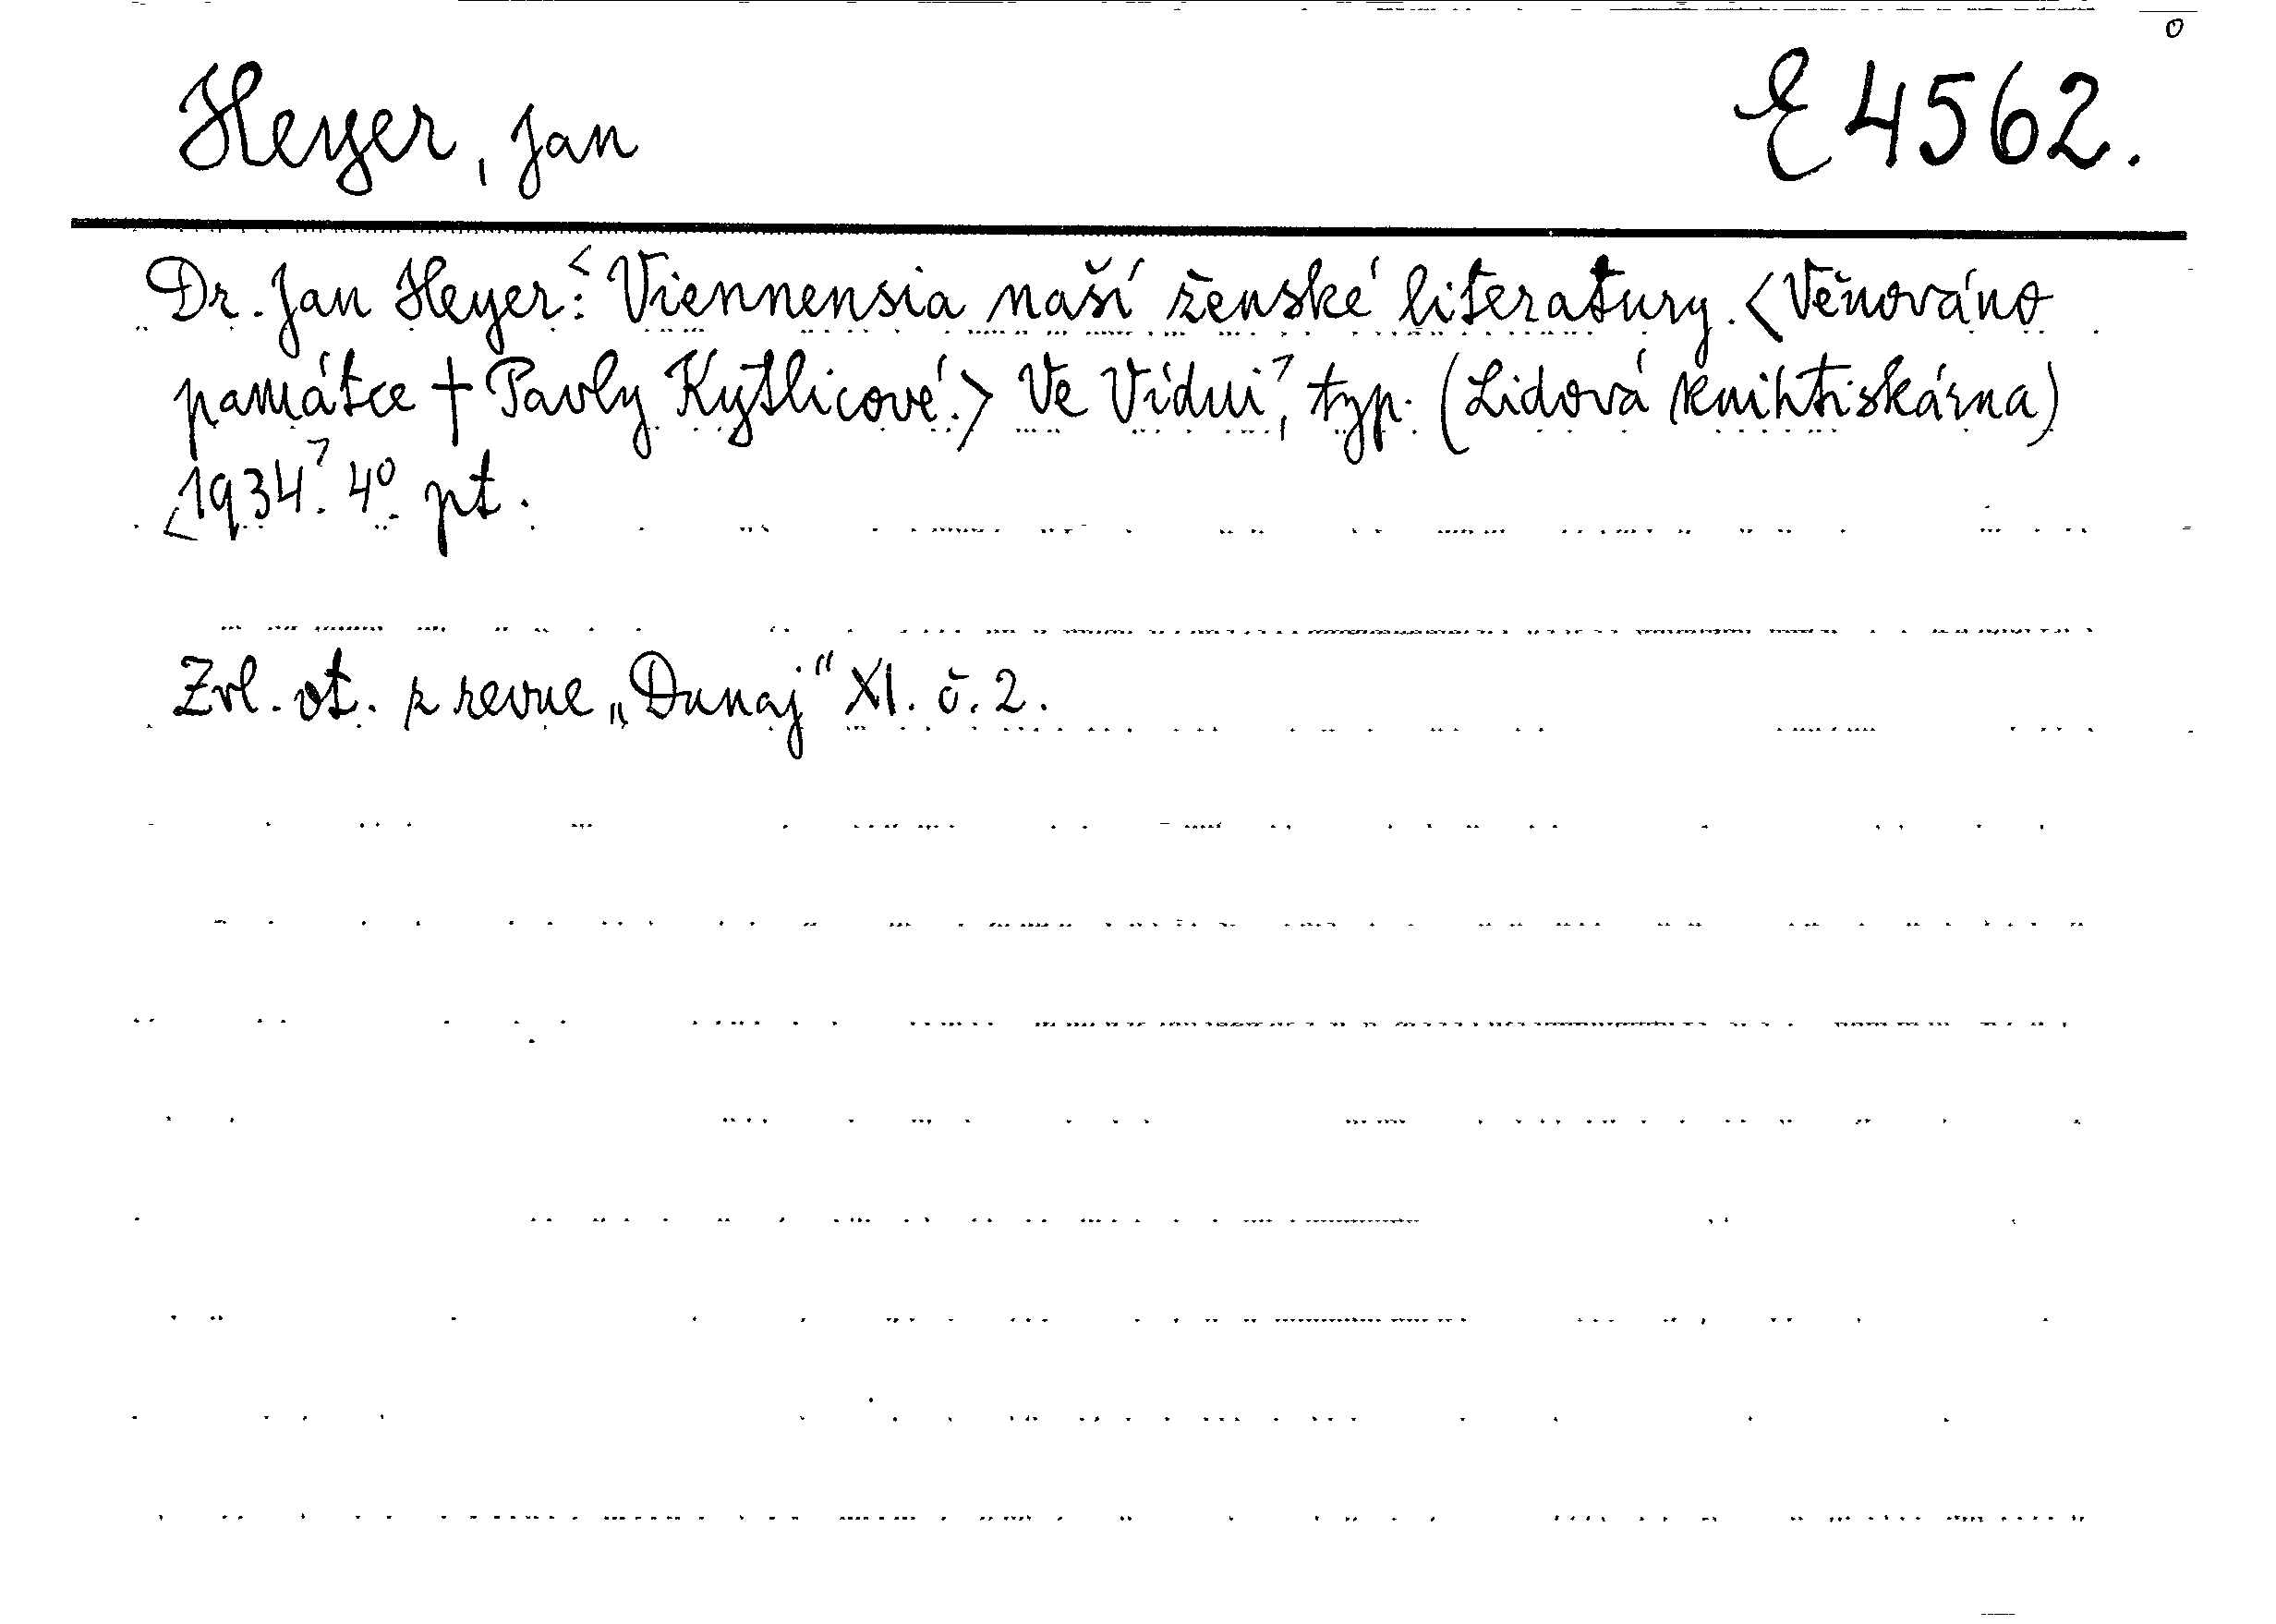 Heyer, Jan E 4562.
Dr. Jan Heyer:< Viennensia naší ženské literatury. <Věnováno
památce † Pavly Kytlicové.> Ve Vídni,> typ. (Lidová knihtiskárna)
<1934>. 4° pt.
Zvl. ot. z revue „Dunaj“ XI. č. 2.